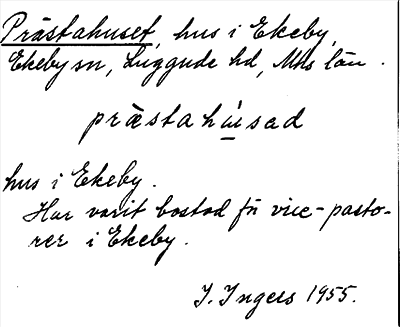 Prästahuset, hus i Ekeby,
Ekeby sn, Luggude hd, Mhs län.
præstahúsad
hus i Ekeby.
Har varit bostad för vice-pasto-
rer i Ekeby.
I. Ingers 1955.